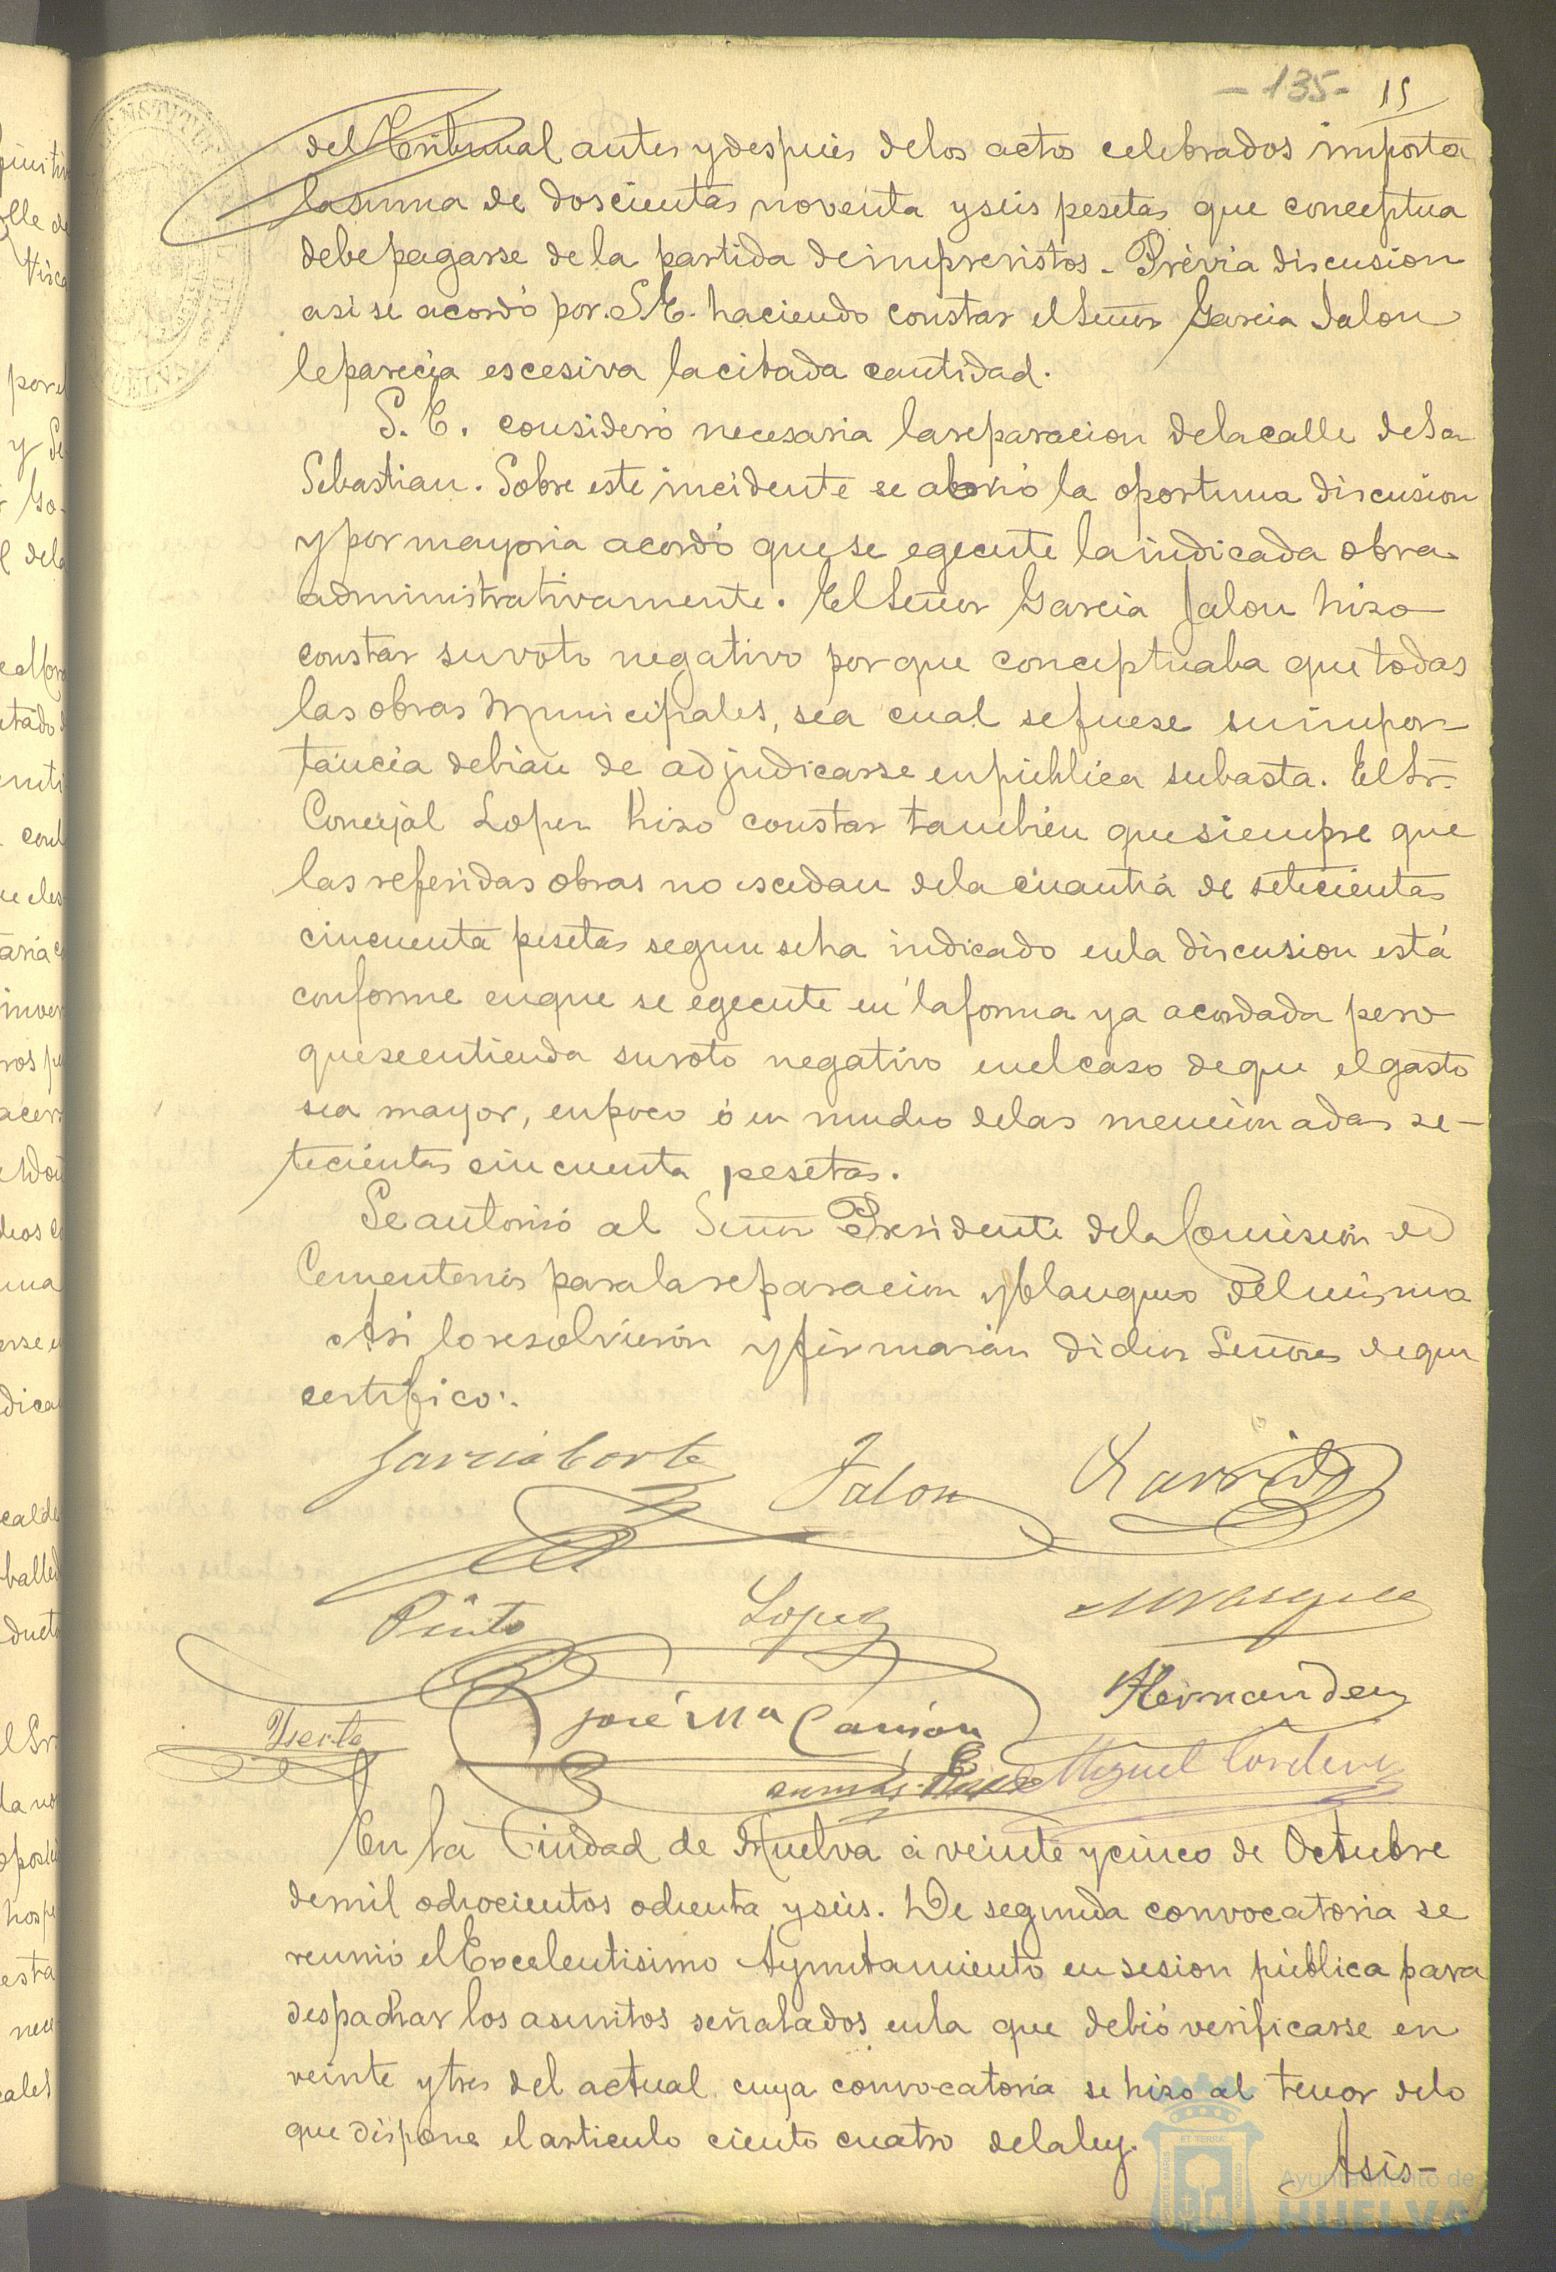 - 135 - 15
del Tribunal antes y despues de los actos celebrados importa
la suma de doscientas noventa y seis pesetas que conceptua
debe pagarse de la partida de imprevistos. Prévia discusion
asi se acordó por S.E. haciendo constar el Señor Garcia Jalon
le parecia escesiva la citada cantidad.
S. E. consideró necesaria la reparacion de la calle de San
Sebastian. Sobre este incidente se abrió la oportuna discusion
y por mayoria acordó que se egecute la indicada obra
administrativamente. El Señor Garcia Jalon hizo
constar su voto negativo por que conceptuaba que todas
las obras Municipales, sea cual se fuese su impor-
tancia debian de adjudicarse en pública subasta. El Sr.
Concejal Lopez hizo constar tambien que siempre que
las referidas obras no escedan de la cuantia de setecientas
cincuenta pesetas segun se ha indicado en la discusion está
conforme en que se egecute en la forma ya acordada pero
que se entienda su voto negativo en el caso de que el gasto
sea mayor, en poco ó en mucho de las mencionadas se-
tecientas cincuenta pesetas.
Se autorizó al Señor Presidente de la Comision de
Cementerios para la reparacion y blanqueo del mismo
Asi lo resolvieron y firmarán dichos Señores de que
certifico.
Garcia Corte Jalon Garrido
Pinto Lopez M Vazquez
José Mª Carrion Hernandez
Miguel Cordero
En la Ciudad de Huelva á veinte y cinco de Octubre
de mil ochocientos ochenta y seis. De segunda convocatoria se
reunió el Excelentisimo Ayuntamiento en sesion pública para
despachar los asuntos señalados en la que debió verificarse en
veinte y tres del actual cuya convocatoria se hizo al tenor de lo
que dispone el articulo ciento cuatro de la ley.
Asis-
Ayuntamiento de
HUELVA